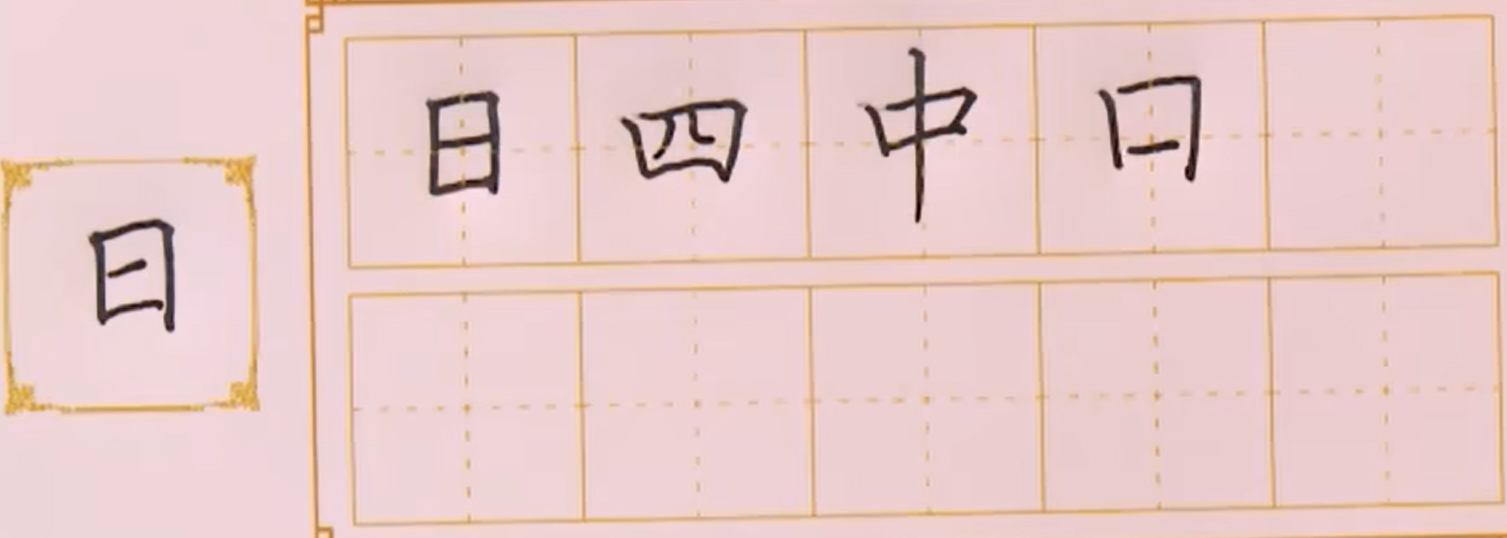 日
日四中口